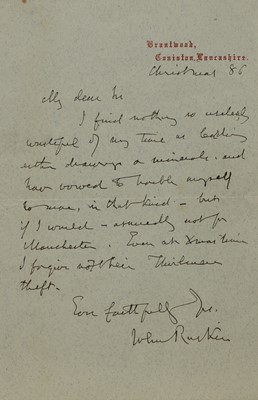 Brantwood,
Coniston, Lancashire.
Christmas 86
My dear Sir
I find nothing so uselessly
wasteful of my time as looking
either drawings or minerals. and
have vowed to trouble myself
no more, in that kind - but
if I would - assuredly not for
Manchester. Even at Xmas time
I forgive not their Thirlmere
theft.
Ever faithfully Yrs.
John Ruskin